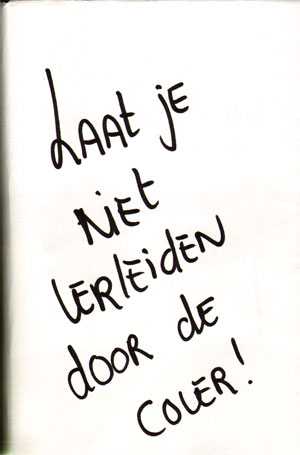 LAAt je
NiEt
VERlEidEN
dOOR dE
COVER!